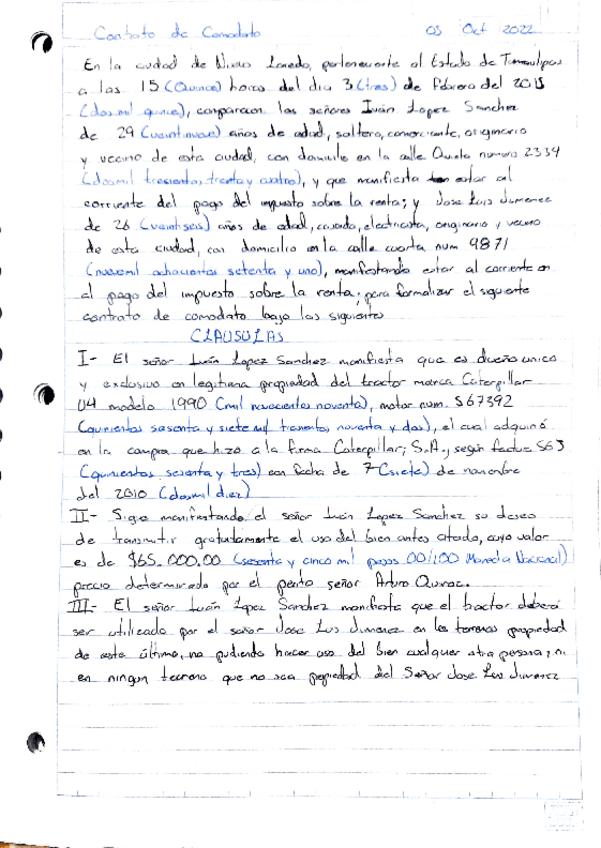 Contrato de Comodato 03 Oct 2022
En la ciudad de Nuevo Laredo, perteneciente al Estado de Tamaulipas
a las 15 (Quince) horas del dia 3 (tres) de febrero del 2015
(dos mil quince), comparecen los señores Iván Lopez Sanchez
de 29 (veintinueve) años de edad, soltero, comerciante, originario
y vecino de esta ciudad, con domicilio en la calle Quinta numero 2334
(dosmil trescientos, trenta y cuatro), y que manifiesta estar al
corriente del pago del impuesto sobre la renta; y Jose Luis Jimenez
de 26 (veintiseis) años de edad, casado, electricista, originario y vecino
de esta ciudad, con domicilio en la calle cuarta num 9871
(nuevemil ochocientos setenta y uno), manifestando estar al corriente en
el pago del impuesto sobre la renta; para formalizar el siguiente
contrato de comodato bajo las siguientes
CLAUSULAS
I- El señor Iván Lopez Sanchez manifiesta que es dueño unico
y exclusivo en legitima propiedad del tractor marca Caterpillar
U4 modelo 1990 (mil novecientos noventa), motor num. 567392
(quinientos sesenta y siete mil trescientos, noventa y dos), el cual adquirió
en la compra que hizo a la firma Caterpillar, S.A., según factura 563
(quinientos, sesenta y tres) con fecha de 7 (siete) de noviembre
del 2010 (dosmil diez)
II- Sigue manifestando el señor Iván Lopez Sanchez su deseo
de transmitir gratuitamente el uso del bien antes citado, cuyo valor
es de $65,000.00 (sesenta y cinco mil pesos 00/100 Moneda Nacional)
precio determinado por el perito señor Arturo Quiroz.
III- El señor Iván Lopez Sanchez manifiesta que el tractor deberá
ser utilizado por el señor Jose Luis Jimenez en los terrenos propiedad
de este último, no pudiendo hacer uso del bien cualquier otra persona, ni
en ningun terreno que no sea propiedad del Señor Jose Luis Jimenez